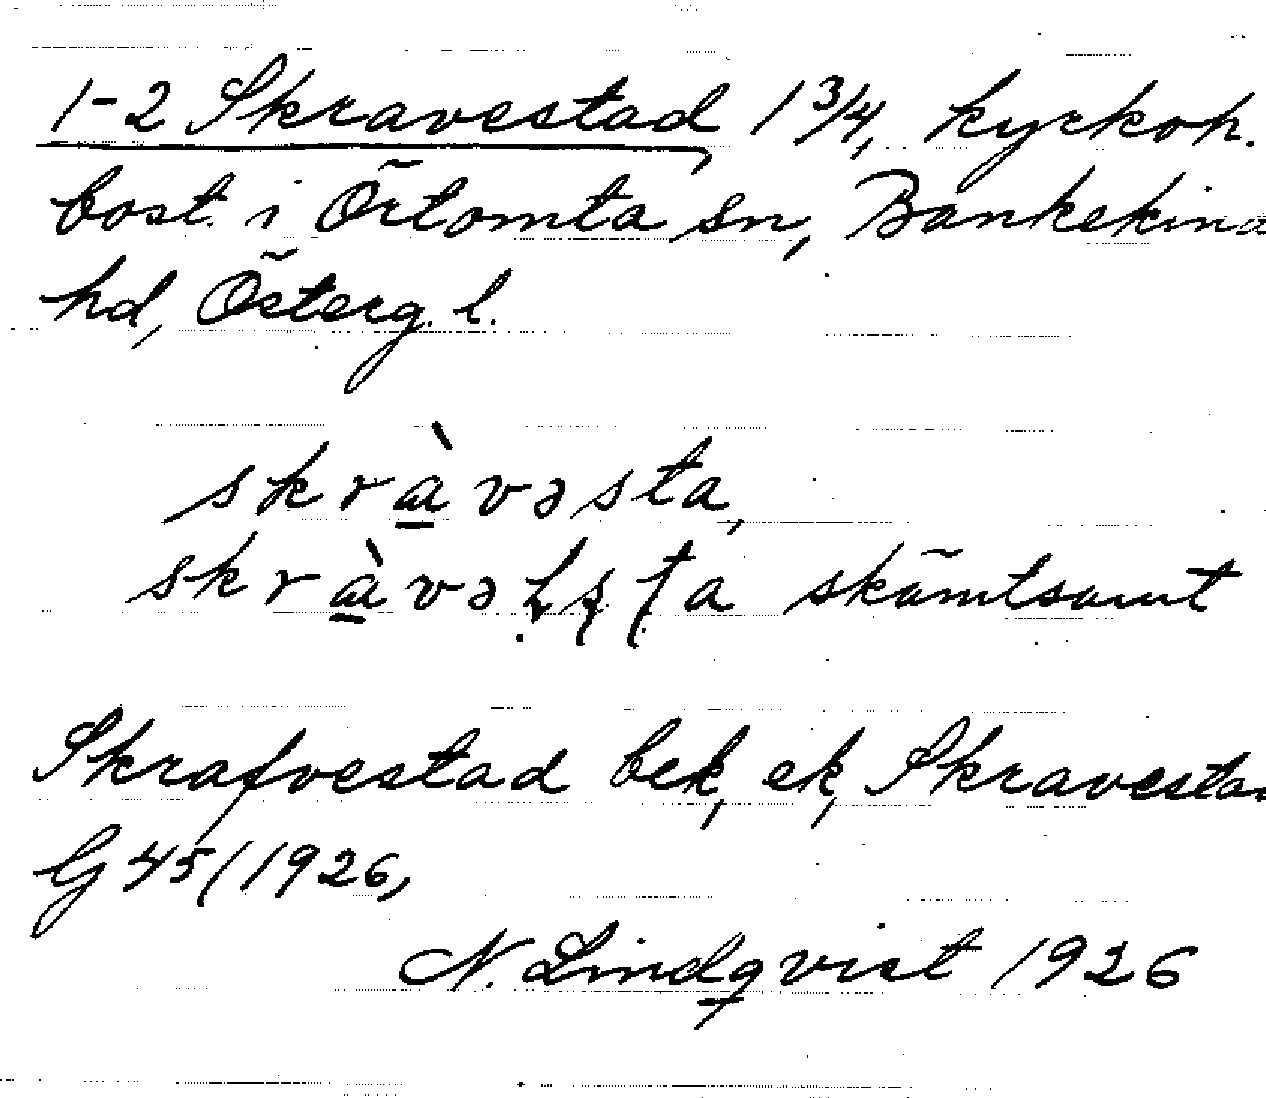 1-2 Skravestad, 1 3/4, kyrkoh.
bost. i Örtomta sn, Bankekind
hd, Österg. l.
skràvəsta,
skràvəḷʂʈa skämtsamt
Skrafvestad bek, ek, Skravestad
G 45/1926,
N. Lindqvist 1926